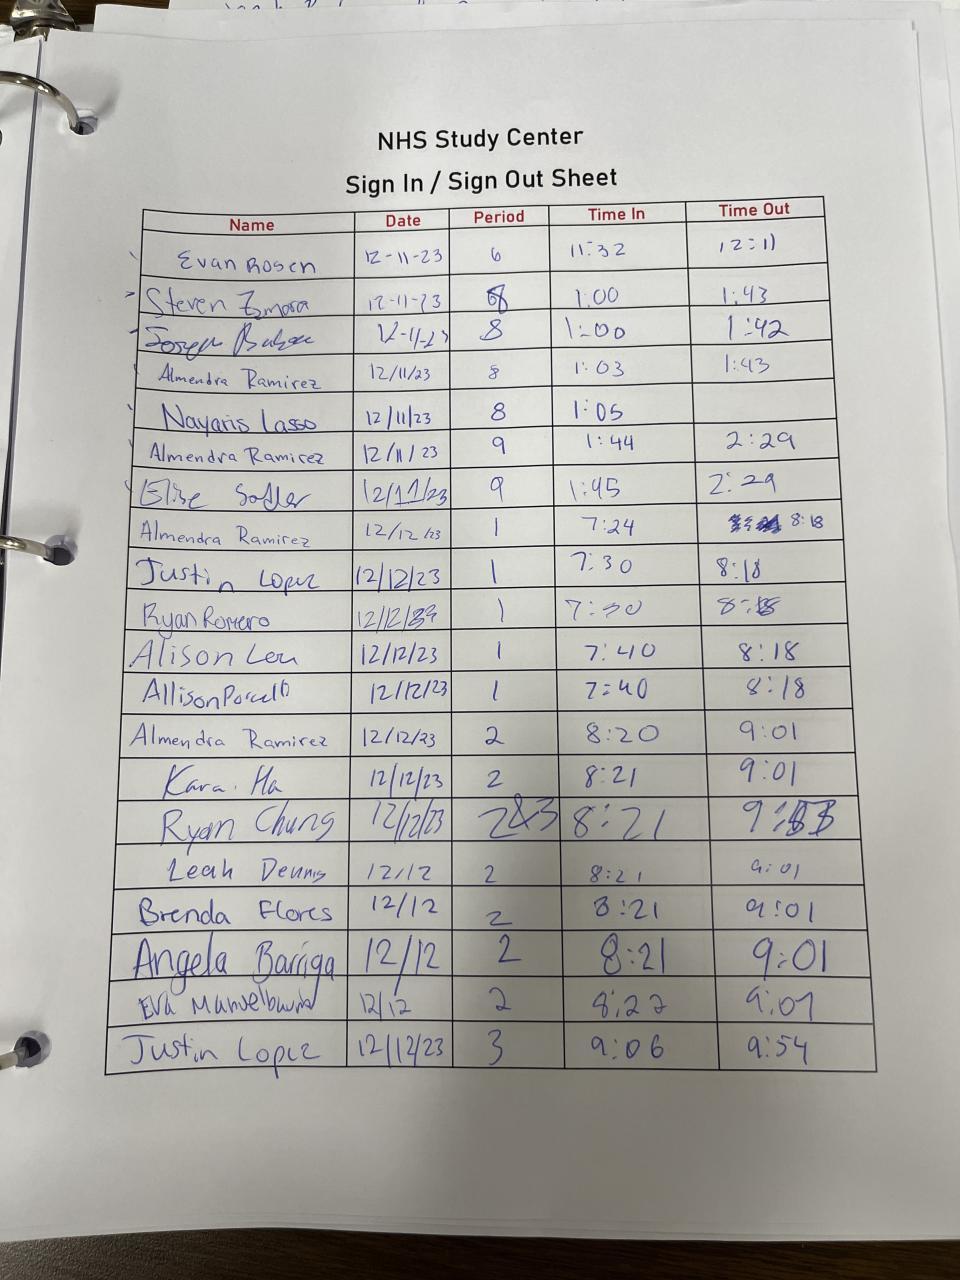 NHS Study Center
Sign In / Sign Out Sheet
Name Date Period Time In Time Out
Evan Rosen 12-11-23 6 11:32 12:11
Steven Zamora 12-11-23 8 1:00 1:43
Joseph 12-11-23 8 1:00 1:42
Almendra Ramirez 12/11/23 8 1:03 1:43
Nayaris Lasso 12/11/23 8 1:05
Almendra Ramirez 12/11/23 9 1:44 2:29
Elise 12/11/23 9 1:45 2:29
Almendra Ramirez 12/12/23 1 7:24 8:18
Justin Lopez 12/12/23 1 7:30 8:18
Ryan Romero 12/12/23 1 7:30 8:18
Alison Leu 12/12/23 1 7:40 8:18
Allison 12/12/23 1 7:40 8:18
Almendra Ramirez 12/12/23 2 8:20 9:01
Kara Ha 12/12/23 2 8:21 9:01
Ryan Chung 12/12/23 2&3 8:21
Leah Dennis 12/12 2 8:21 9:01
Brenda Flores 12/12 2 8:21 9:01
Angela Barriga 12/12 2 8:21 9:01
Eva 12/12 2 8:22 9:01
Justin Lopez 12/12/23 3 9:06 9:54